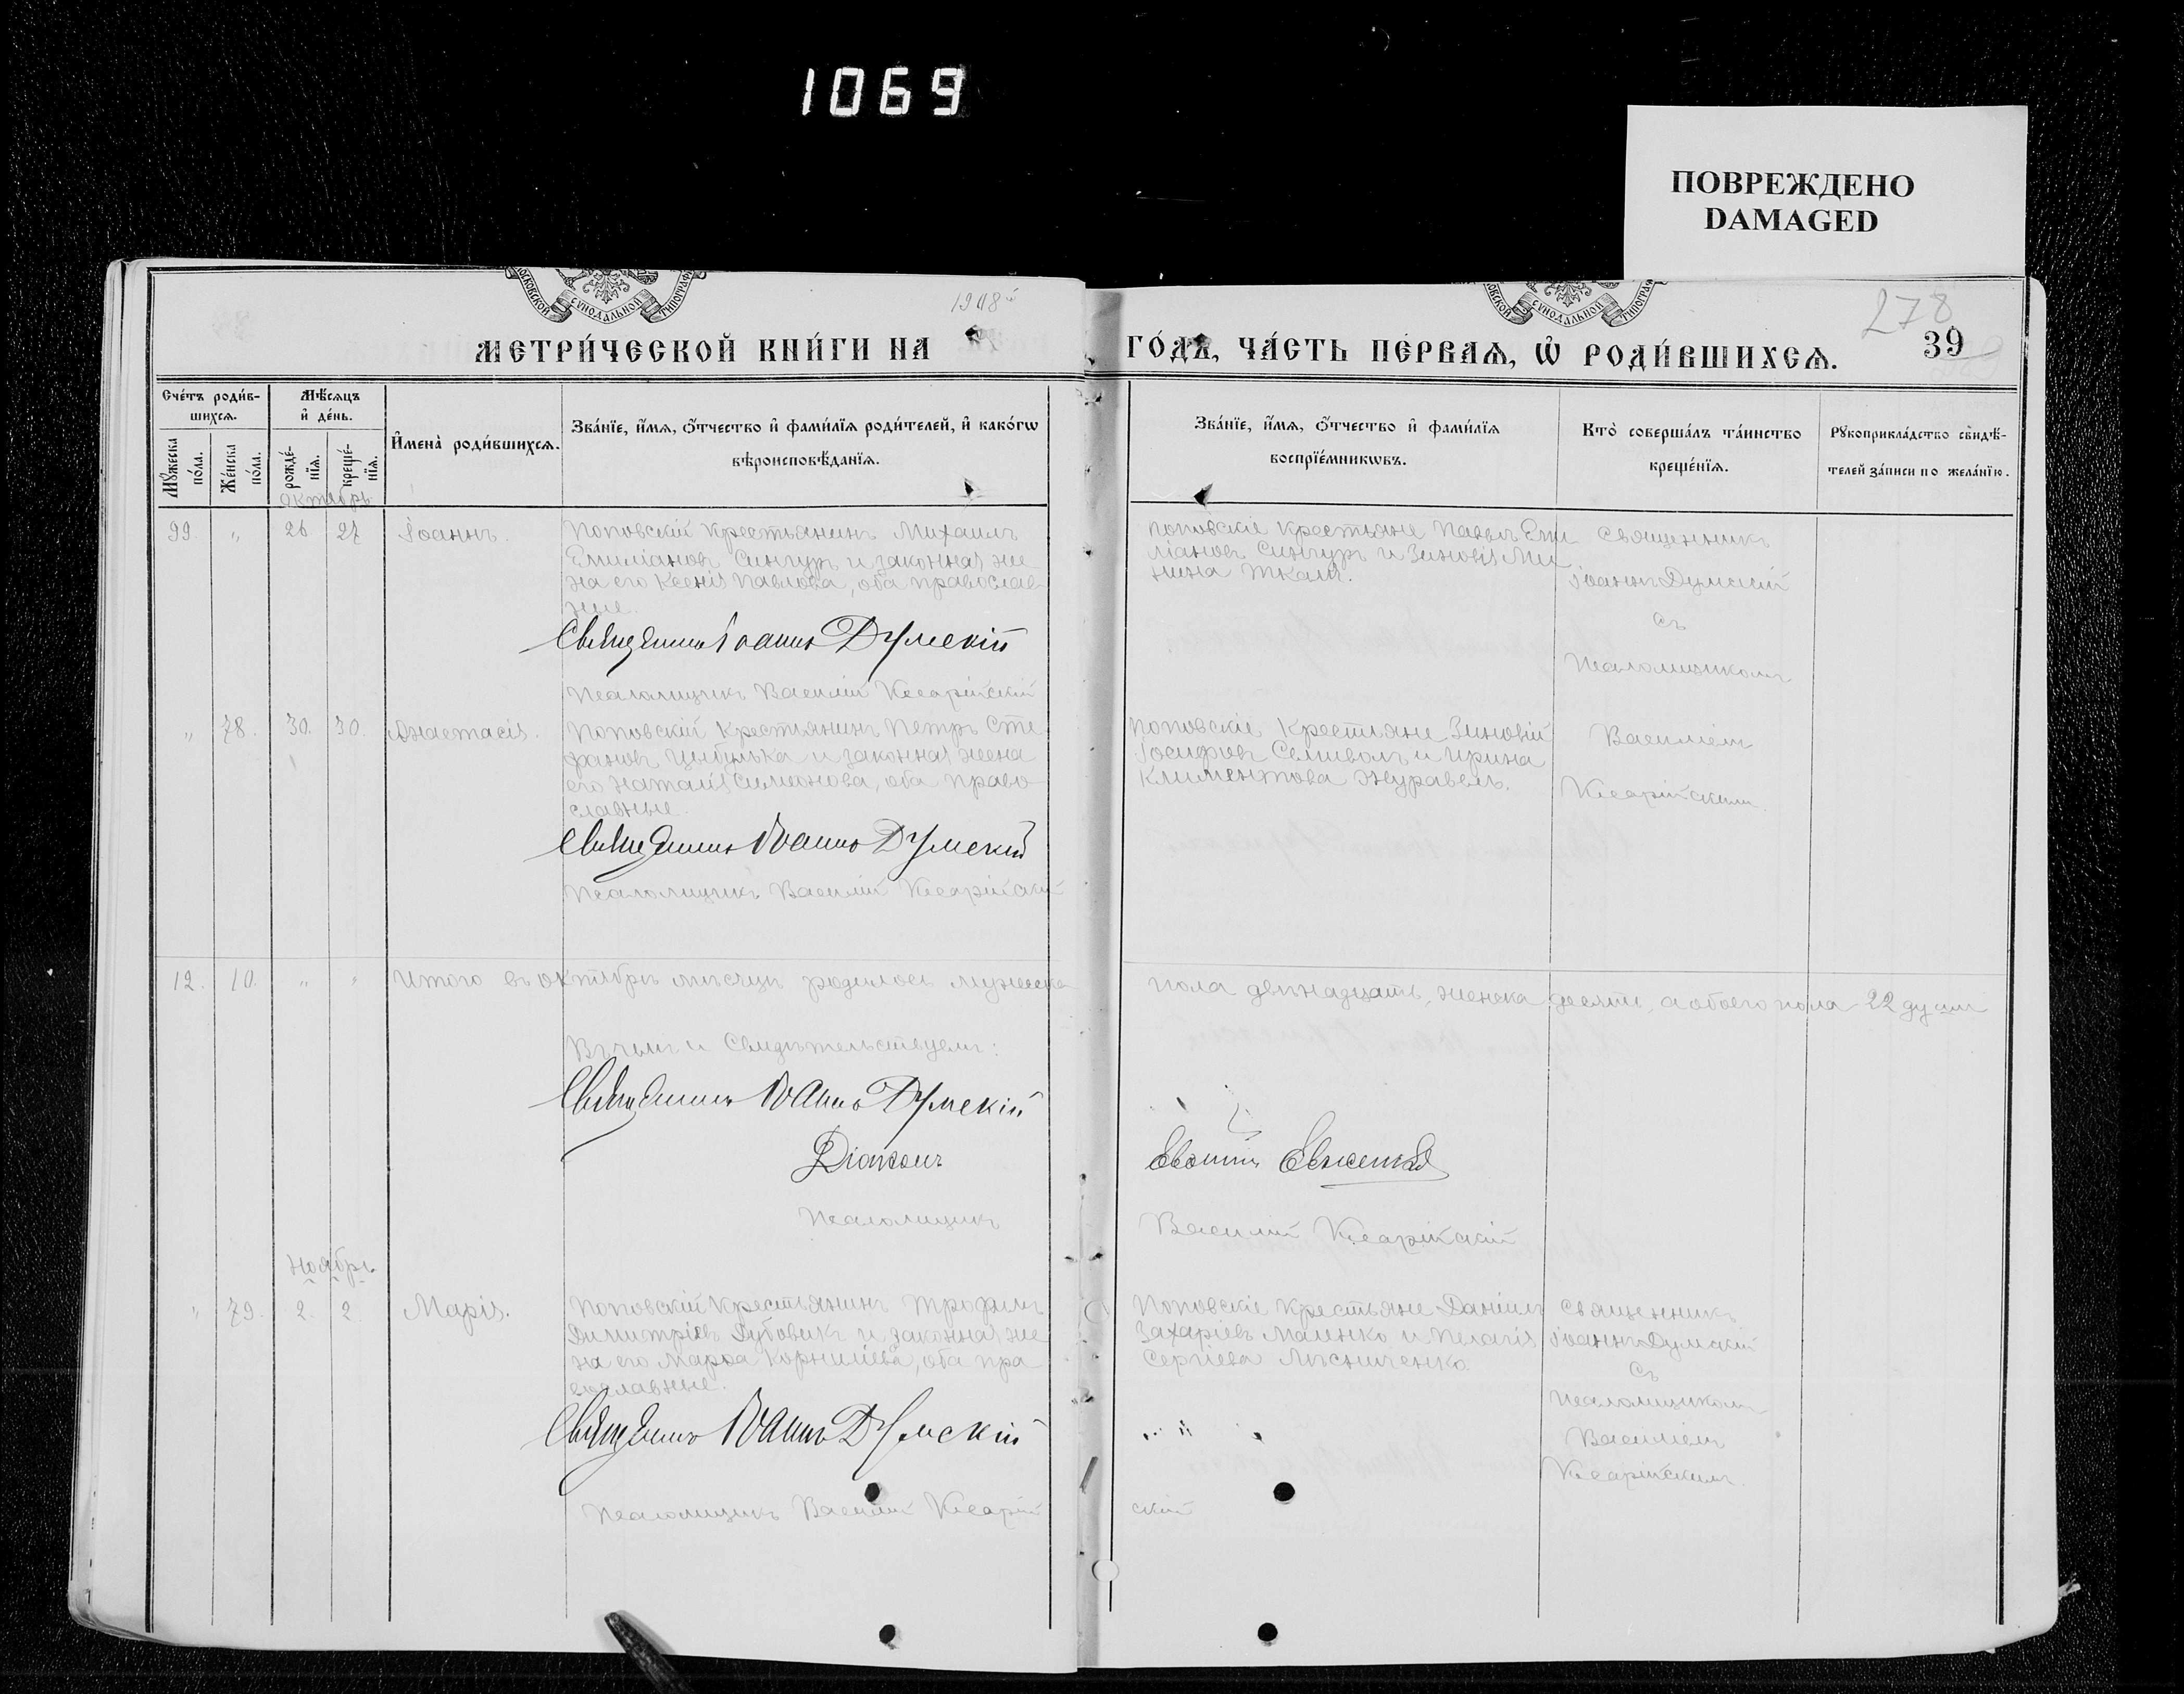 1069
ПОВРЕЖДЕНО
DAMAGED
МОСКОВСКОЙ СѴНОДАЛЬНОЙ ТИПОГРАФ
СѴНОДАЛЬНОЙ ТИПОГРАФ
278
МЕТРИ́ЧЕСКОЙ КНИ́ГИ НА
ГО́ДЪ, ЧА́СТЬ ПЕ́РВАѦ, Ѿ РОДИ́ВШИХСѦ.
39
Сче́тъ роди́в-
шихсѧ.
Мꙋ́жеска по́ла.
Же́нска по́ла.
Мѣ́сѧцъ
и҆ де́нь.
рожде́-
нїѧ.
креще́-
нїѧ.
И҆мена̀ роди́вшихсѧ.
Зва́нїе, и҆́мѧ, ѻ҆́тчество и҆ фами́лїѧ роди́телей, и҆ како́гѡ
вѣроисповѣ́данїѧ.
Зва́нїе, и҆́мѧ, ѻ҆́тчество и҆ фами́лїѧ
воспрїе́мникѡвъ.
Кто̀ соверша́лъ та́инство
креще́нїѧ.
Рꙋкоприкла́дство свидѣ́-
телей за́писи по жела́нїю.
октябрь
99. " 26 27 Іоаннъ.
Поповскій крестьянинъ Михаилъ
Емиліановъ Сингуръ и законная же-
на его Ксенія Павлова, оба православ-
ные.
Священникъ Іоаннъ Думскій
Псаломщикъ Василій Кесарійскій
Поповскіе крестьяне Павелъ Еми-
ліановъ Сингуръ и Зиновія Ми-
нина Ткачъ.
Священникъ
Іоаннъ Думскій
съ
Псаломщикомъ
Василіемъ
Кесарійскимъ.
" 78. 30. 30. Анастасія.
Поповскій крестьянинъ Петръ Сте-
фановъ Цыбулька и законная жена
его Наталія Симонова, оба право-
славные.
Священникъ Іоаннъ Думскій
Псаломщикъ Василій Кесарійскій
Поповскіе крестьяне Зиновій
Іосифовъ Семиволъ и Ирина
Климентова Журавель.
12. 10. " " Итого въ октябрѣ мѣсяцѣ родилось мужеска
пола двѣнадцать, женска десять, а обоего пола 22 души
свидѣтельствуемъ:
Священникъ Іоаннъ Думскій
Діаконъ
Псаломщикъ
Василій Кесарійскій
Ноябрь.
" 79. 2. 2. Марія.
Поповскій крестьянинъ Трофимъ
Димитріевъ Дубовикъ и законная же-
на его Марѳа Корниліева, оба пра-
вославные.
Священникъ Іоаннъ Думскій
Псаломщикъ Василій Кесарій
скій
Поповскіе крестьяне Даніилъ
Захаріевъ Маленко и Пелагія
Сергіева Лѣсниченко.
Священникъ
Іоаннъ Думскій
съ
Псаломщикомъ
Василіемъ
Кесарійскимъ.